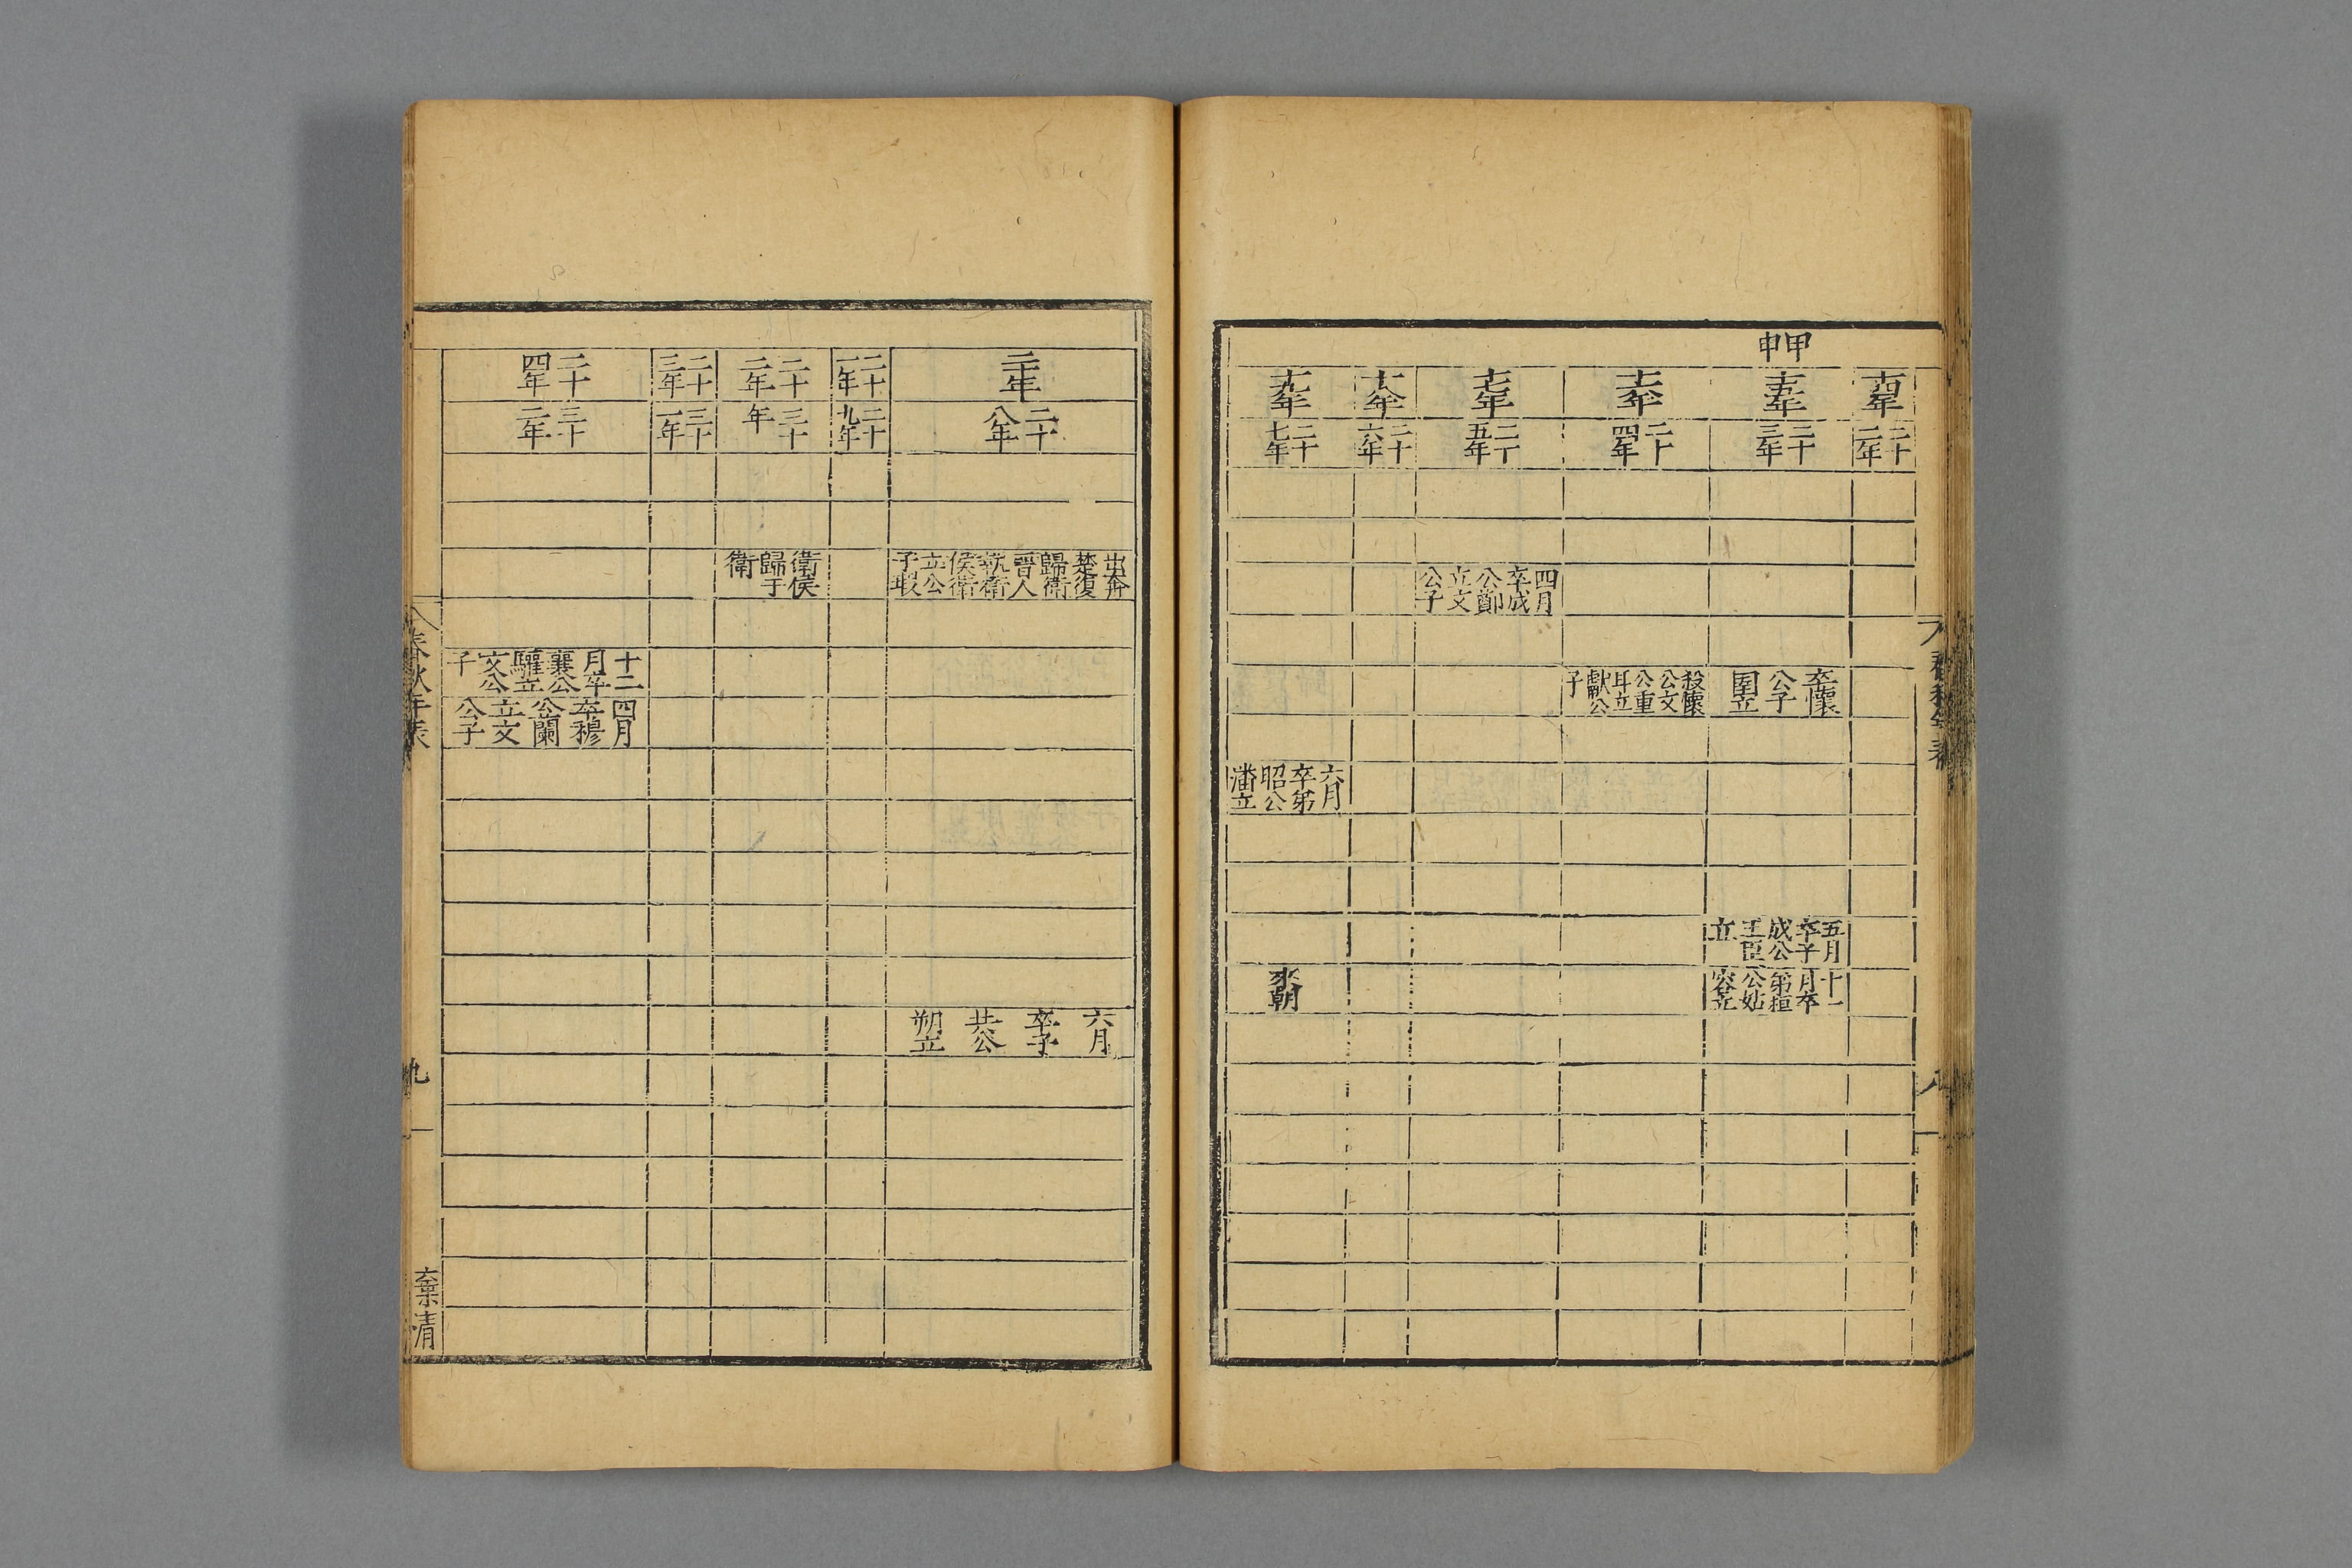 春秋年表
八
甲申
十四年
二十二年
十五年
二十三年
卒懷公子圉立
五月卒子成公王臣立
十一月卒弟桓公姑容立
十六年
二十四年
殺懷公文公重耳立獻公子
十七年
二十五年
四月卒成公鄭立文公子
十八年
二十六年
十九年
二十七年
六月卒弟昭公潘立
來朝
二十年
二十八年
出奔楚復歸衛晉人執衛侯衛立公子瑕
六月卒子共公朔立
二十一年
二十九年
二十二年
三十年
衛侯歸于衛
二十三年
三十一年
二十四年
三十二年
十二月卒襄公驩立文公子
四月卒穆公蘭立文公子
春秋年表
九